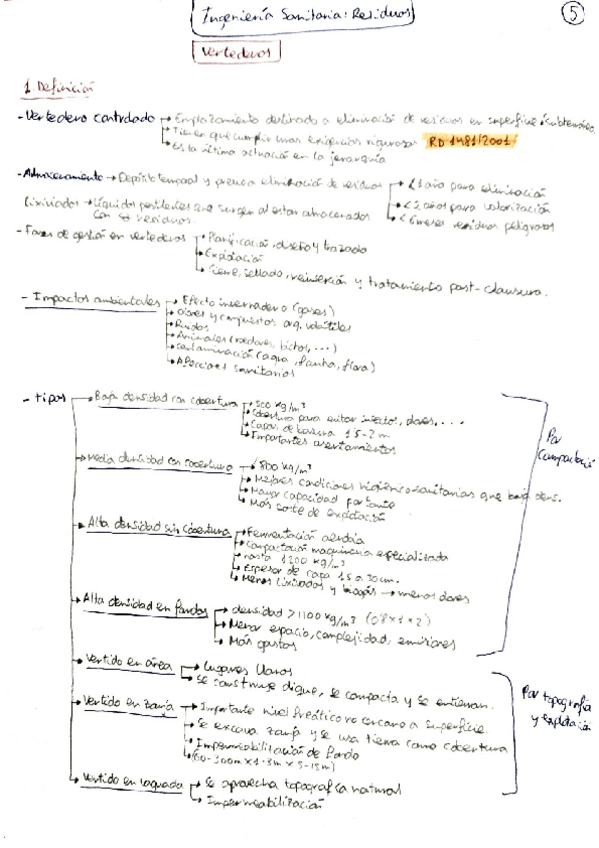 Ingeniería Sanitaria: Residuos
5
Vertederos
1. Definición
- Vertedero controlado → Emplazamiento destinado a eliminación de residuos en superficie o subterráneo.
→ Tienen que cumplir unas exigencias rigurosas RD 1481/2001
→ Es la última actuación en la jerarquía
- Almacenamiento → Depósito temporal y previa eliminación de residuos → < 1 año para eliminación
→ < 2 años para valorización
→ < 6 meses residuos peligrosos
Lixiviados → Líquidos pestilentes que surgen al estar almacenados
con residuos.
- Fases de gestión en vertederos → Planificación, diseño y trazado
→ Explotación
→ Cierre, sellado, reinserción y tratamiento post-clausura.
- Impactos ambientales → Efecto invernadero (gases)
→ Olores y compuestos org. volátiles
→ Ruidos
→ Animales (roedores, bichos, ...)
→ Contaminación (agua, fauna, flora)
→ Afecciones sanitarias
- Tipos → Baja densidad con cobertura → 500 kg/m³
→ Cobertura para evitar insectos, olores, ...
→ Capas de basura 1'5-2 m
→ Importantes asentamientos
→ Media densidad con cobertura → 800 kg/m³
→ Mejores condiciones higiénico-sanitarias que baja dens.
→ Mayor capacidad portante
→ Más coste de explotación
→ Alta densidad sin cobertura → Fermentación aerobia
→ Compactación maquinaria especializada
→ Hasta 1200 kg/m³
→ Espesor de capa 15 a 30 cm.
→ Menos lixiviados y biogás → menos olores
→ Alta densidad en fardos → densidad > 1100 kg/m³ (0'8 x 1 x 2)
→ Menor espacio, complejidad, emisiones
→ Más gastos
Por
Compactación
→ Vertido en área → Lugares llanos
→ Se construye dique, se compacta y se entierran.
→ Vertido en zanja → Importante nivel freático no cercano a superficie.
→ Se excava zanja y se usa tierra como cobertura
→ Impermeabilización de fondo
→ (60-300m x 1-3m x 5-15m)
→ Vertido en vaguada → Se aprovecha topografía natural
→ Impermeabilización
Por topografía
y explotación